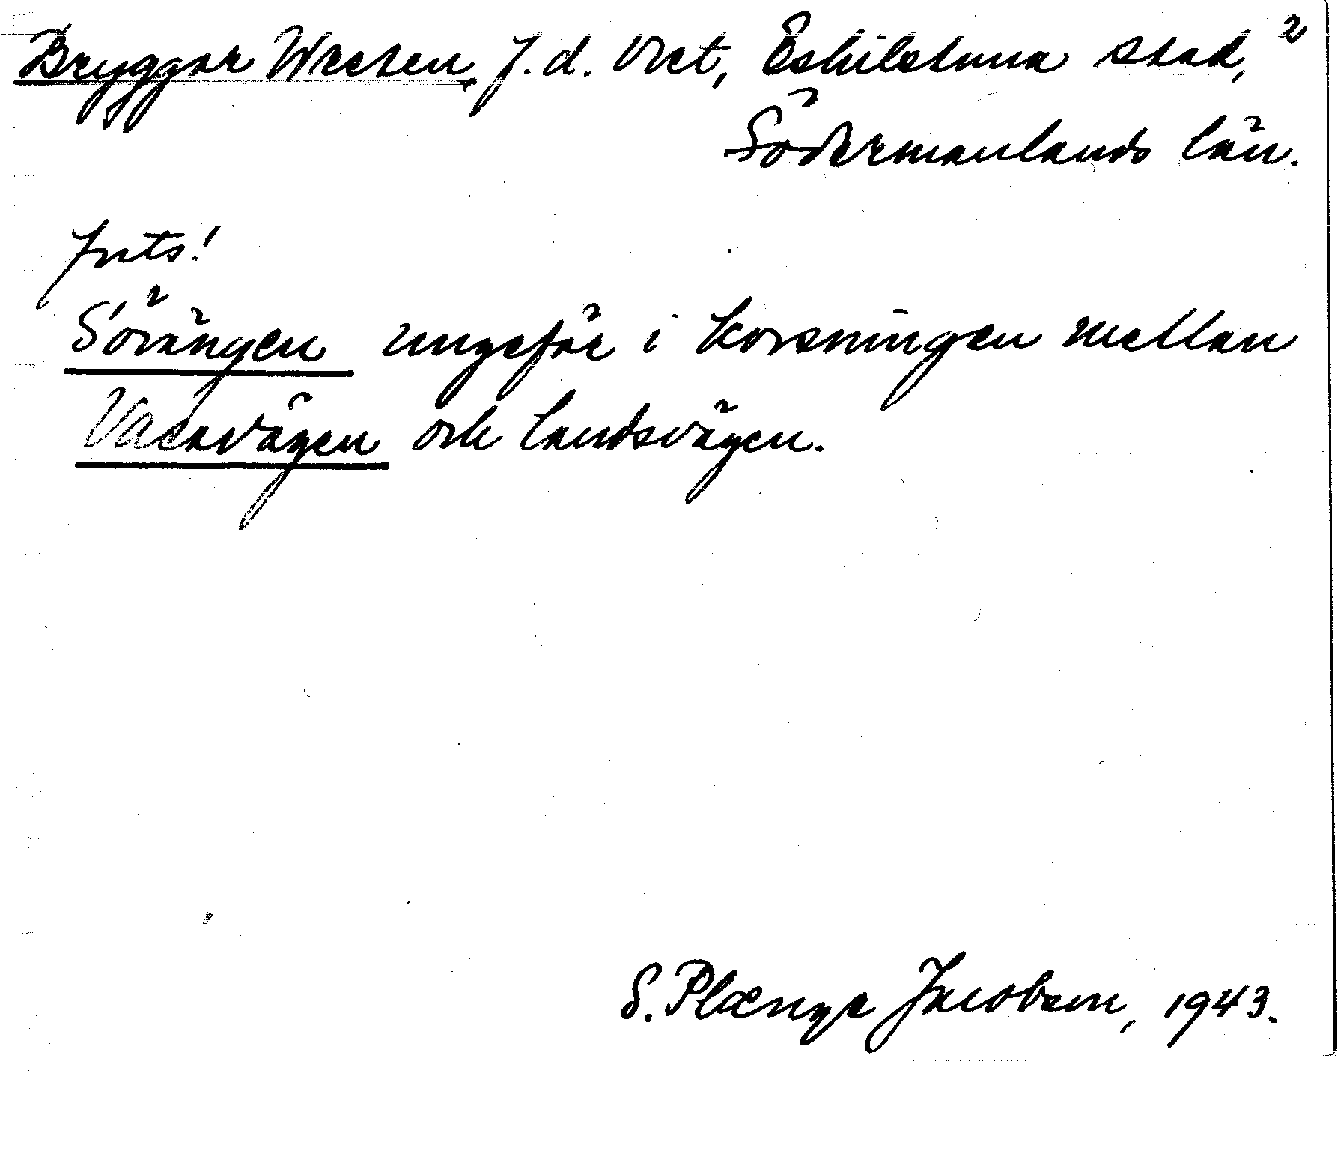 Bryggar Wreten, f.d. vret, Eskilstuna stad, 2
Södermanlands län.
forts!
Sörängen ungefär i korsningen mellan
och landsvägen.
S. Plænge Jacobson, 1943.